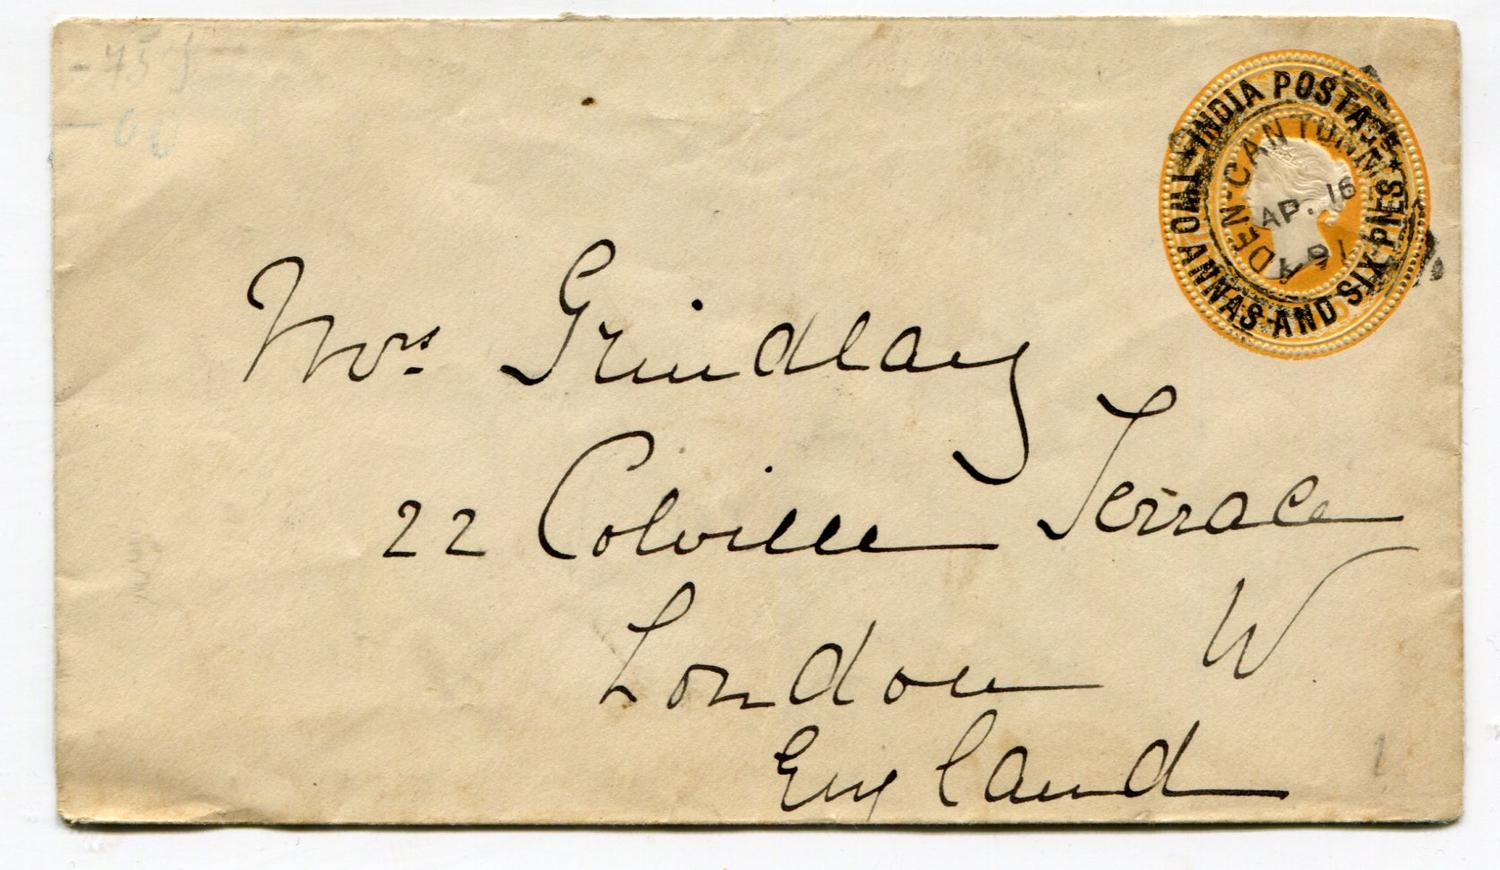 INDIA POSTAGE
TWO ANNAS AND SIX PIES
DEN-CANTONM
AP. 16
91
Mrs. Grindlay
22 Colville Terrace
London W
England